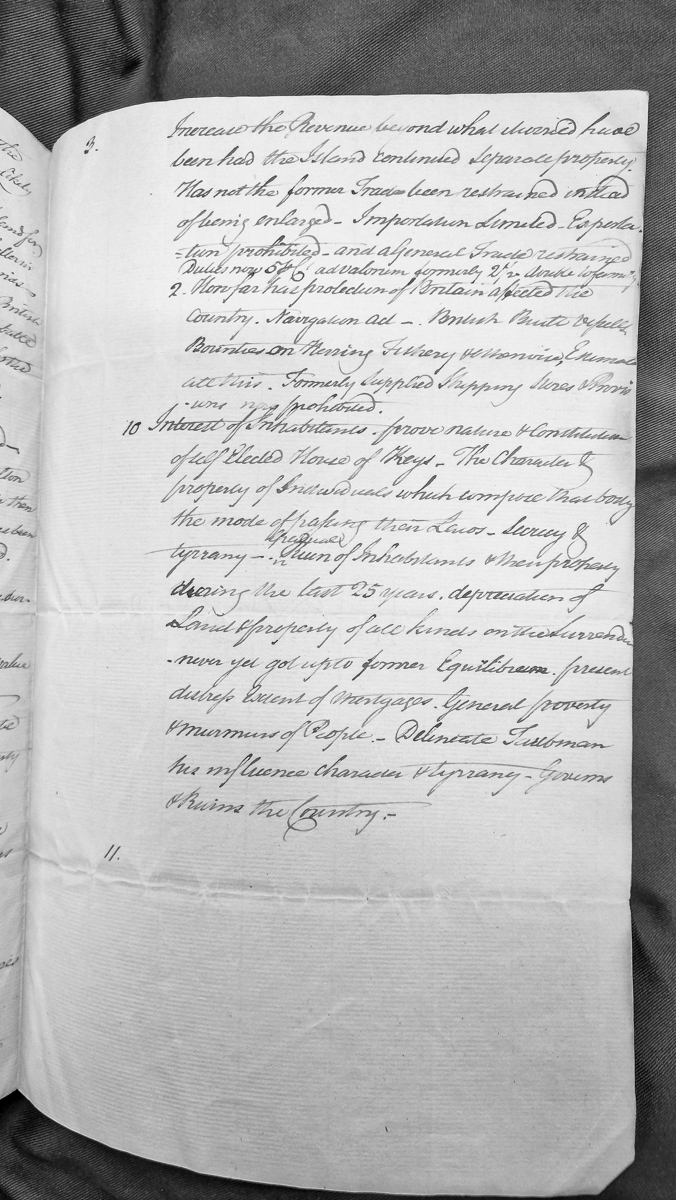 3. Increase the Revenue beyond what it would have
been had the Island continued separate property.
Has not the former Trade been restrained instead
of being enlarged - Importation Limited - Exporta-
=tion prohibited - and a General Trade restrained
Duties now 5 & ad valorem formerly 2½ double to form
2. How far has protection of Britain affected the
Country. Navigation act -. British Built Vessells
Bounties on Herring Fishery & otherwise, Examine
all this. Formerly Supplied Shipping Stores & Provis
-ions now prohibited.
10 Interest of Inhabitants - prove nature & Constitution
of self Elected House of Keys - The Character &
property of Individuals which compose that body
the mode of passing their Laws - Secrecy &
gradual
tyranny - Ruin of Inhabitants & their property
during the last 25 years. depreciation of
Land & property of all kinds on the Surrender
- never yet got up to former Equilibream. present
distress Extent of Mortgages. General poverty
& murmurs of People. - Delineate Taubman
his influence character & tyrranny - Governs
& Ruins the Country. -
11.